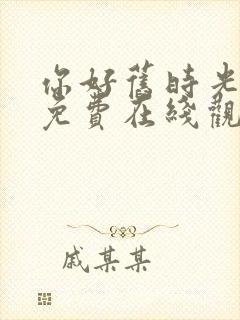 你好舊時光
免費在綫觀
戚某某